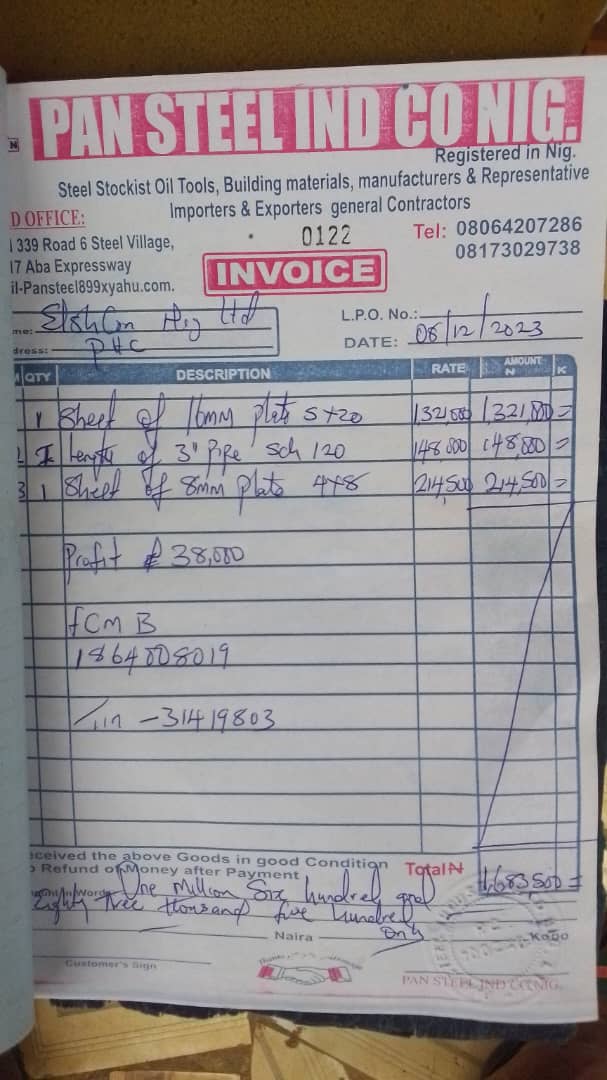 PAN STEEL IND CO NIG.
Registered in Nig.
Steel Stockist Oil Tools, Building materials, manufacturers & Representative
Importers & Exporters general Contractors
D OFFICE:
339 Road 6 Steel Village,
17 Aba Expressway
il-Pansteel899xyahu.com.
0122
Tel: 08064207286
08173029738
INVOICE
me: Nig Ltd
dress: PHC
L.P.O. No.:
DATE: 08/12/2023
QTY DESCRIPTION RATE AMOUNT
N K
1 Sheet of 16mm plate 5x20 1,321,000 1,321,000=
2 1 length of 3" pipe Sch 120 148,000 148,000=
3 1 Sheet of 8mm plate 4x8 214,500 214,500=
Profit # 38,000
FCMB
1864008019
Tin - 31419803
eceived the above Goods in good Condition
Refund of Money after Payment
Total N 1,683,500=
One Million Six hundred and
Eighty Three thousand five hundred
Naira Only Kobo
Customer's Sign
PAN STEEL IND CO NIG.